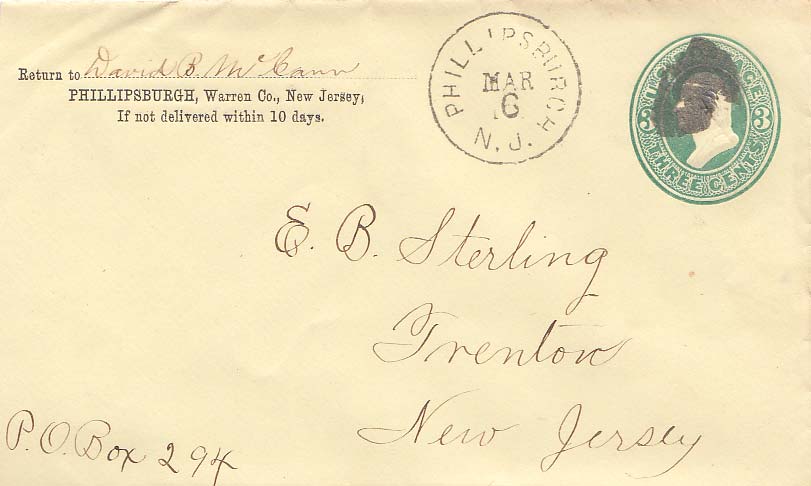 Return to David B. McCann
PHILLIPSBURGH, Warren Co., New Jersey,
If not delivered within 10 days.
PHILLIPSBURGH
MAR
6
N. J.
3 3
THREE CENTS
E. B. Sterling
Trenton
New Jersey
P. O. Box 294